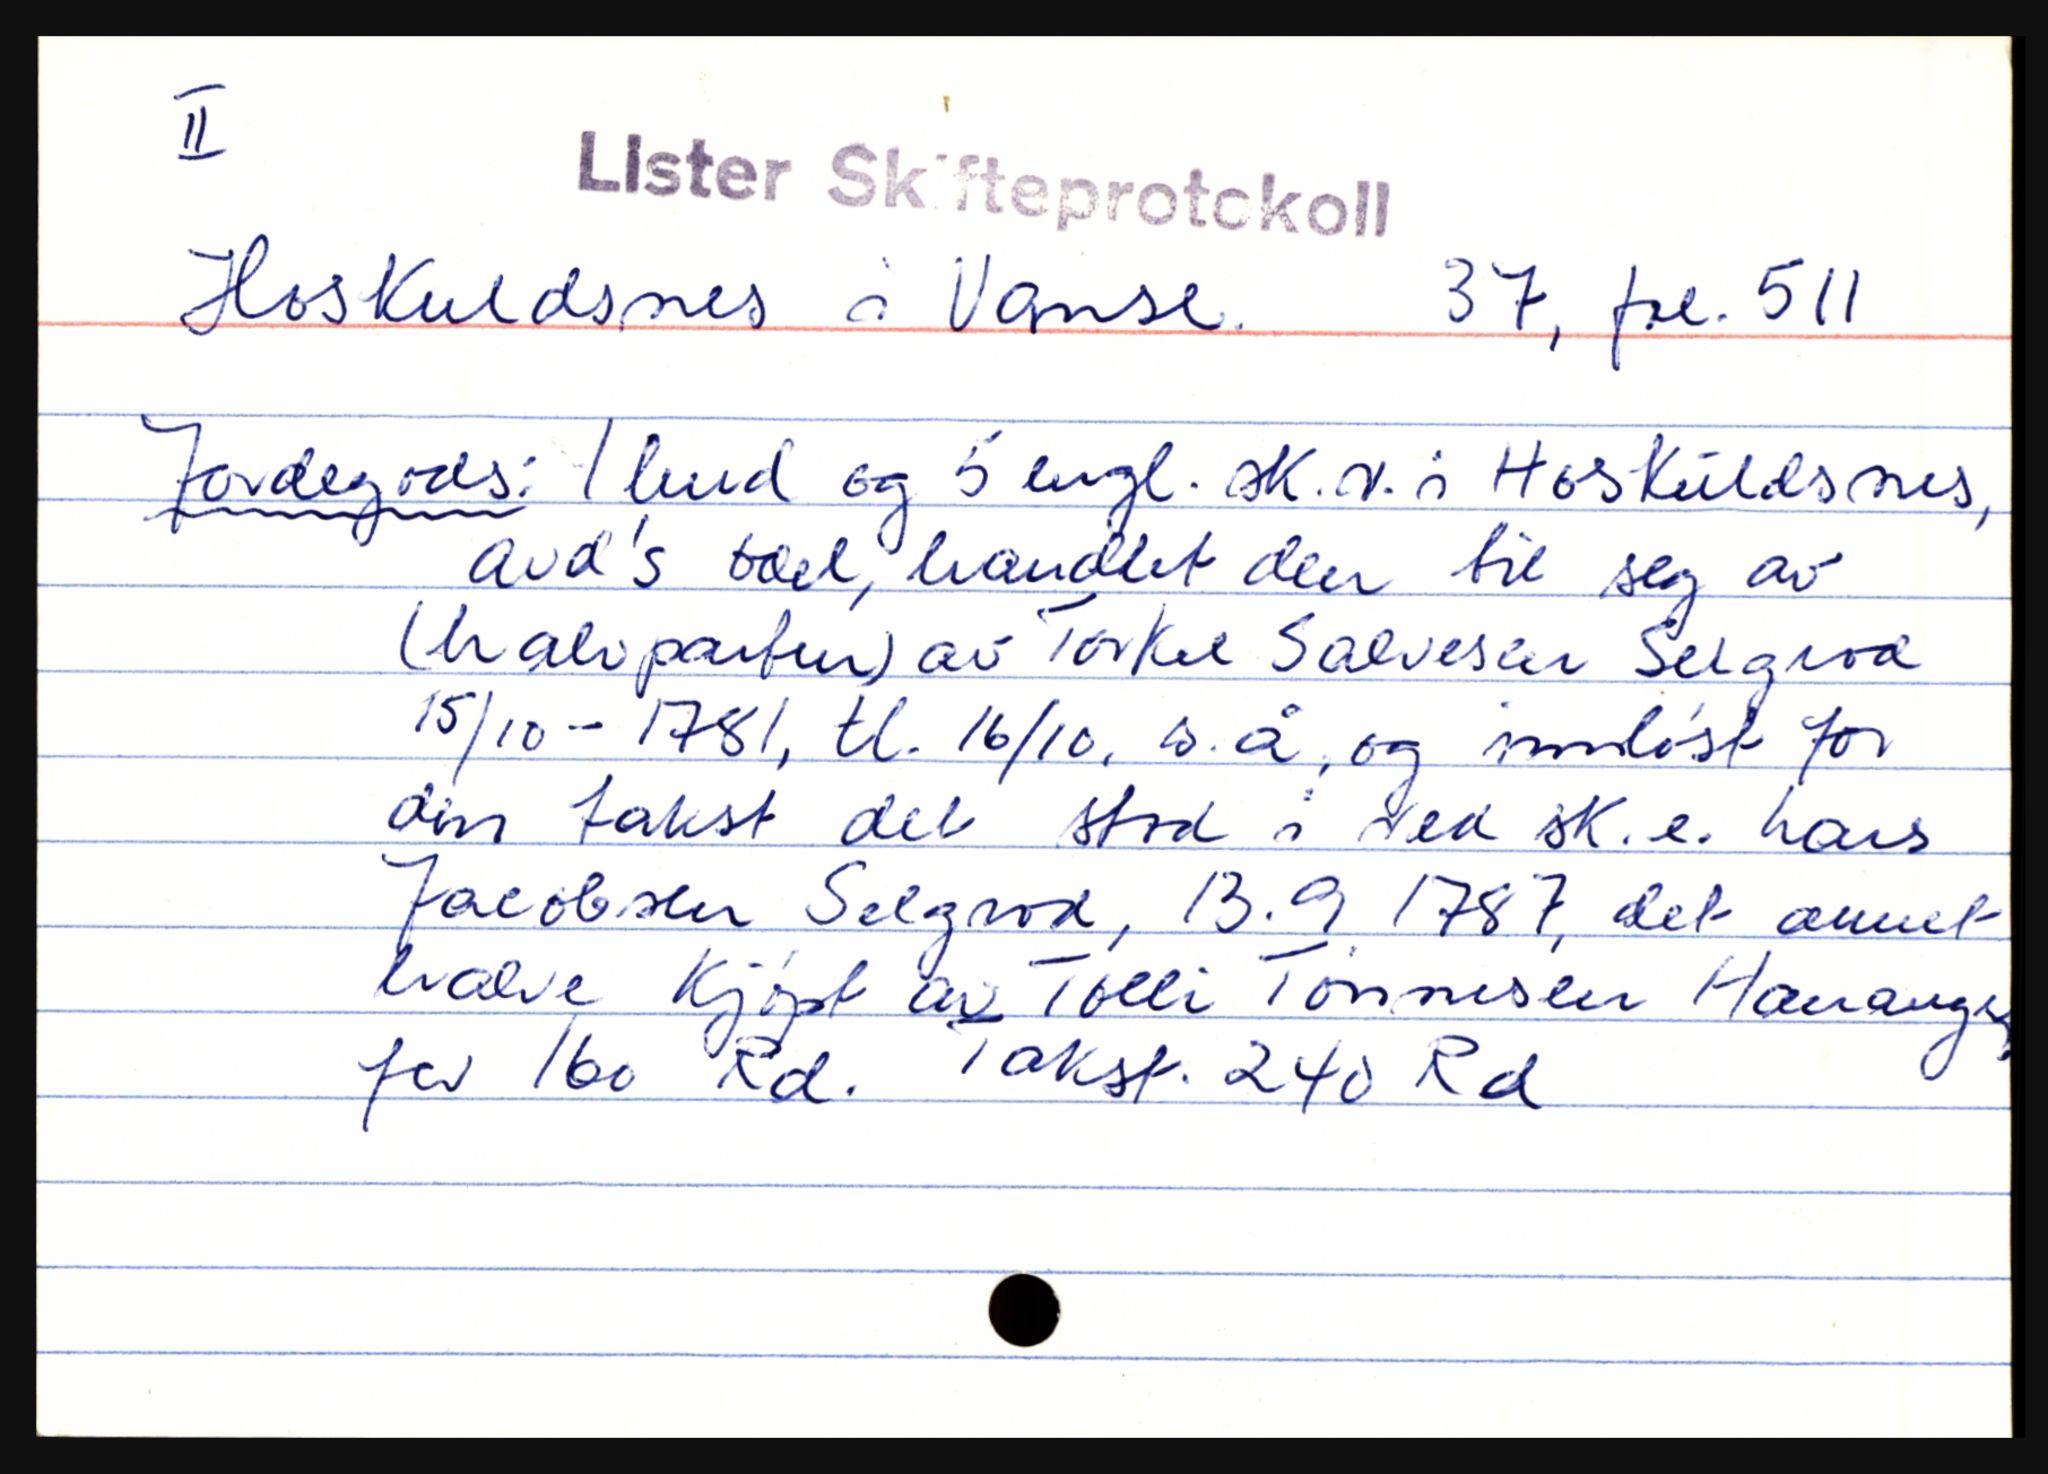 II
Lister Skifteprotokoll
Hoskuldsnes i Vanse. 37, fol. 511
Jordegods: 1 hud og 5 engl. sk. v. i Hoskuldsnes,
avd's odel, handlet den til seg av
(halvparten) av Torkel Salvesen Selgrod
15/10 - 1781, tl. 16/10. s. å, og innløst for
den takst det stod i ved sk. e. Lars
Jacobsen Selgrod, 13. 9 1787, det annet
halve kjøpt av Tolli Tønnesen Hananger
for 160 Rd. Takst. 240 Rd